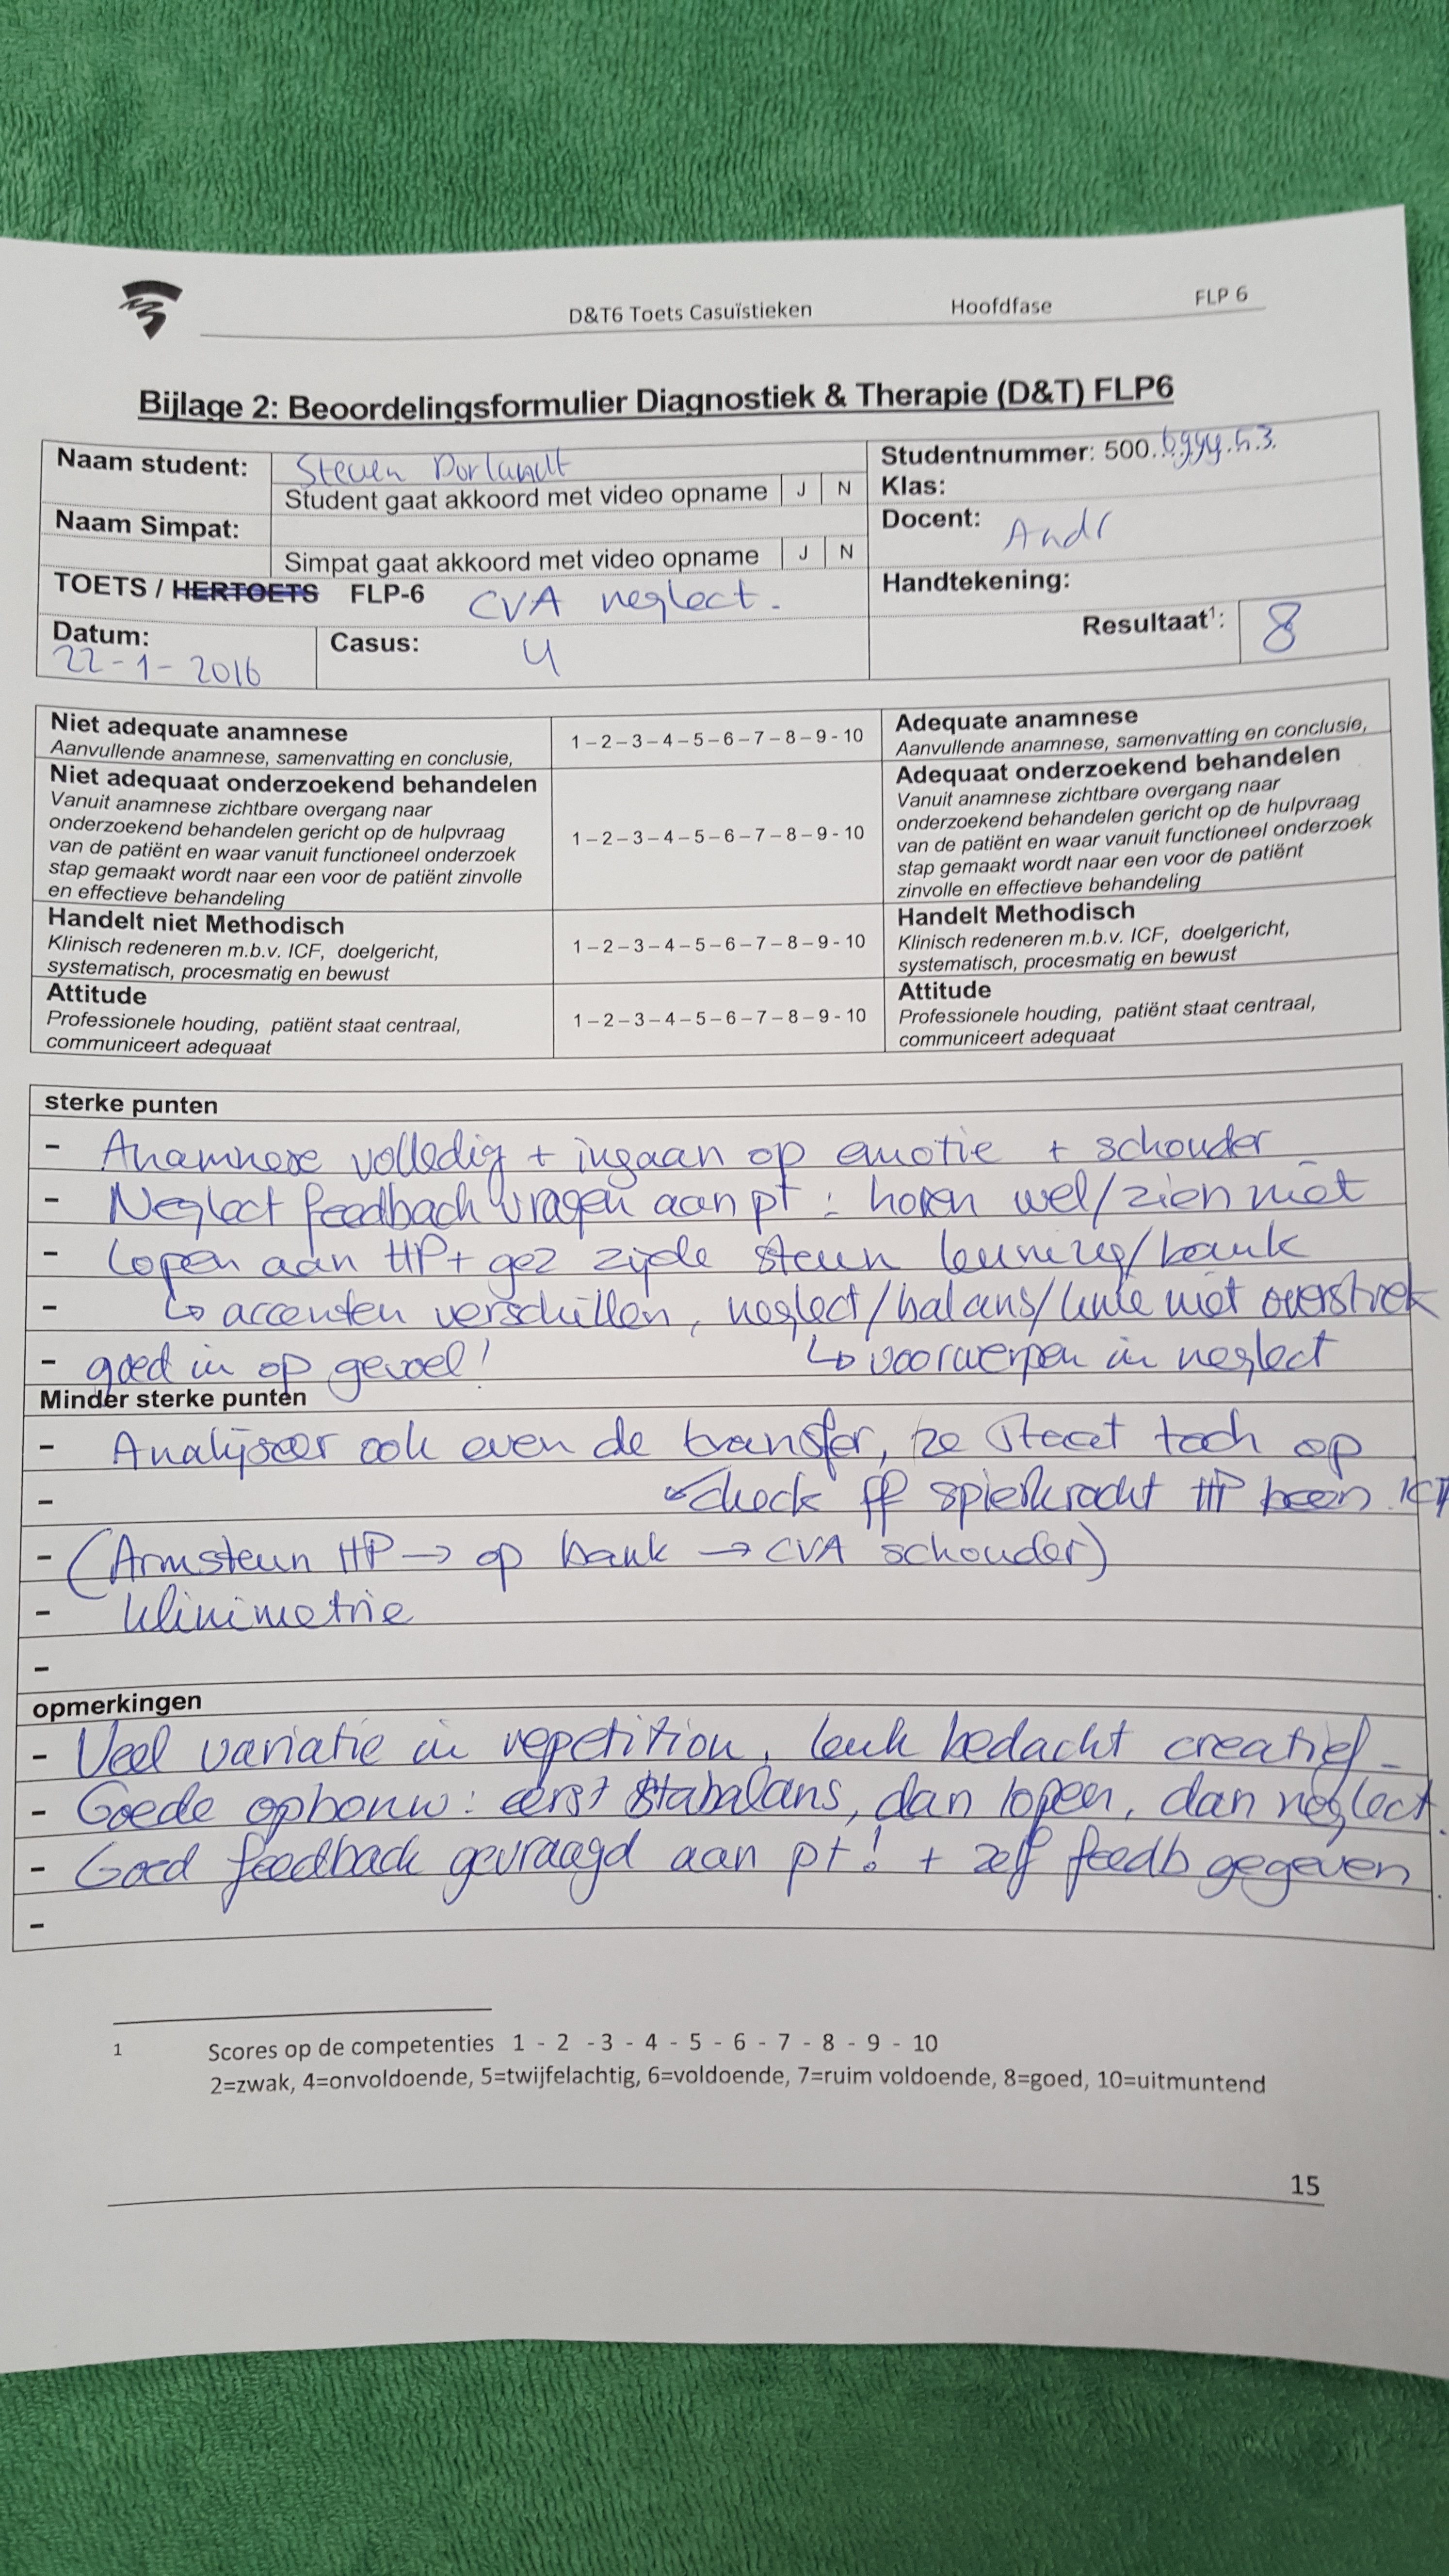 D&T6 Toets Casuïstieken Hoofdfase FLP 6
Bijlage 2: Beoordelingsformulier Diagnostiek & Therapie (D&T) FLP6
Naam student: Steven Dorlandt
Student gaat akkoord met video opname J N
Studentnummer: 500.
Klas:
Naam Simpat:
Simpat gaat akkoord met video opname J N
Docent:
TOETS / HERTOETS FLP-6 CVA neglect.
Handtekening:
Datum: 22-1-2016
Casus: 4
Resultaat1: 8
Niet adequate anamnese 1 – 2 – 3 – 4 – 5 – 6 – 7 – 8 – 9 - 10 Adequate anamnese
Aanvullende anamnese, samenvatting en conclusie, Aanvullende anamnese, samenvatting en conclusie,
Niet adequaat onderzoekend behandelen Adequaat onderzoekend behandelen
Vanuit anamnese zichtbare overgang naar Vanuit anamnese zichtbare overgang naar
onderzoekend behandelen gericht op de hulpvraag 1 – 2 – 3 – 4 – 5 – 6 – 7 – 8 – 9 - 10 onderzoekend behandelen gericht op de hulpvraag
van de patiënt en waar vanuit functioneel onderzoek van de patiënt en waar vanuit functioneel onderzoek
stap gemaakt wordt naar een voor de patiënt zinvolle stap gemaakt wordt naar een voor de patiënt
en effectieve behandeling zinvolle en effectieve behandeling
Handelt niet Methodisch Handelt Methodisch
Klinisch redeneren m.b.v. ICF, doelgericht, 1 – 2 – 3 – 4 – 5 – 6 – 7 – 8 – 9 - 10 Klinisch redeneren m.b.v. ICF, doelgericht,
systematisch, procesmatig en bewust systematisch, procesmatig en bewust
Attitude Attitude
Professionele houding, patiënt staat centraal, 1 – 2 – 3 – 4 – 5 – 6 – 7 – 8 – 9 - 10 Professionele houding, patiënt staat centraal,
communiceert adequaat communiceert adequaat
sterke punten
- Anamnese volledig + ingaan op emotie + schouder
- Neglect feedback vragen aan pt : horen wel/zien niet
- Lopen aan HP + gez zijde steun leuning/bank
- ↳ accenten verschillen, neglect/balans/knie niet overstrek
- goed in op gevoel! ↳ voorwerpen in neglect
Minder sterke punten
- Analyseer ook even de transfer, ze staat toch op
- check ff spierkracht HP been
- (Armsteun HP → op bank → CVA schouder)
- Klinimetrie
-
opmerkingen
- Veel variatie in repetition, leuk bedacht creatief
- Goede opbouw: eerst stabalans, dan lopen, dan neglect.
- Goed feedback gevraagd aan pt! + zelf feedb gegeven.
-
1 Scores op de competenties 1 - 2 - 3 - 4 - 5 - 6 - 7 - 8 - 9 - 10
2=zwak, 4=onvoldoende, 5=twijfelachtig, 6=voldoende, 7=ruim voldoende, 8=goed, 10=uitmuntend
15